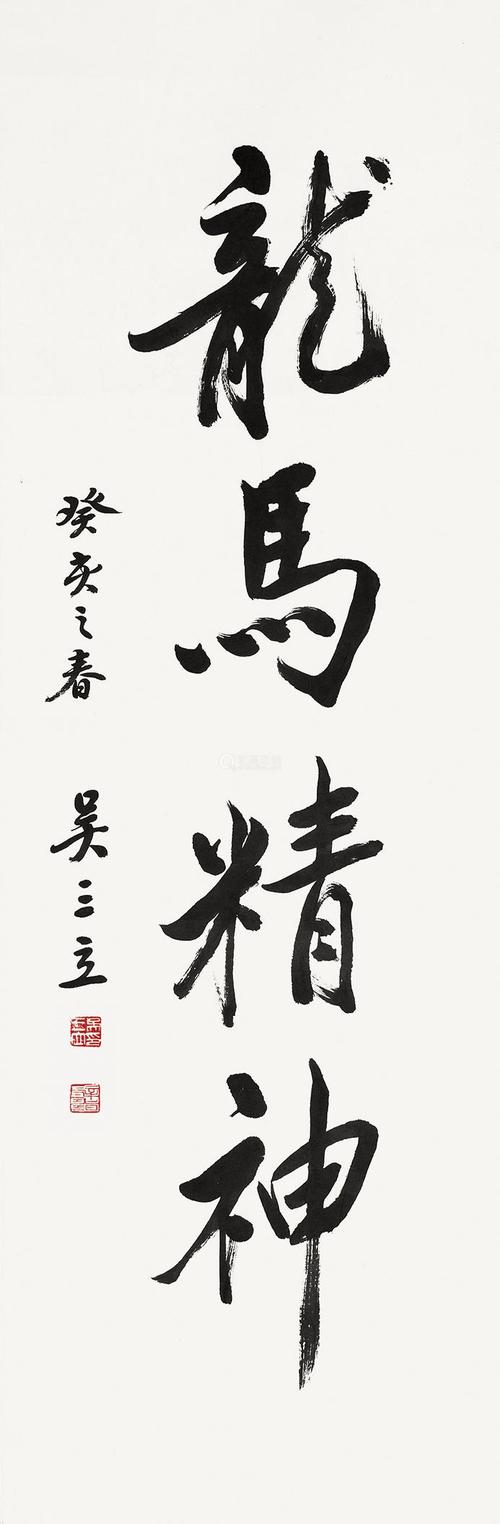 龍馬精神
癸亥之春 吴三立